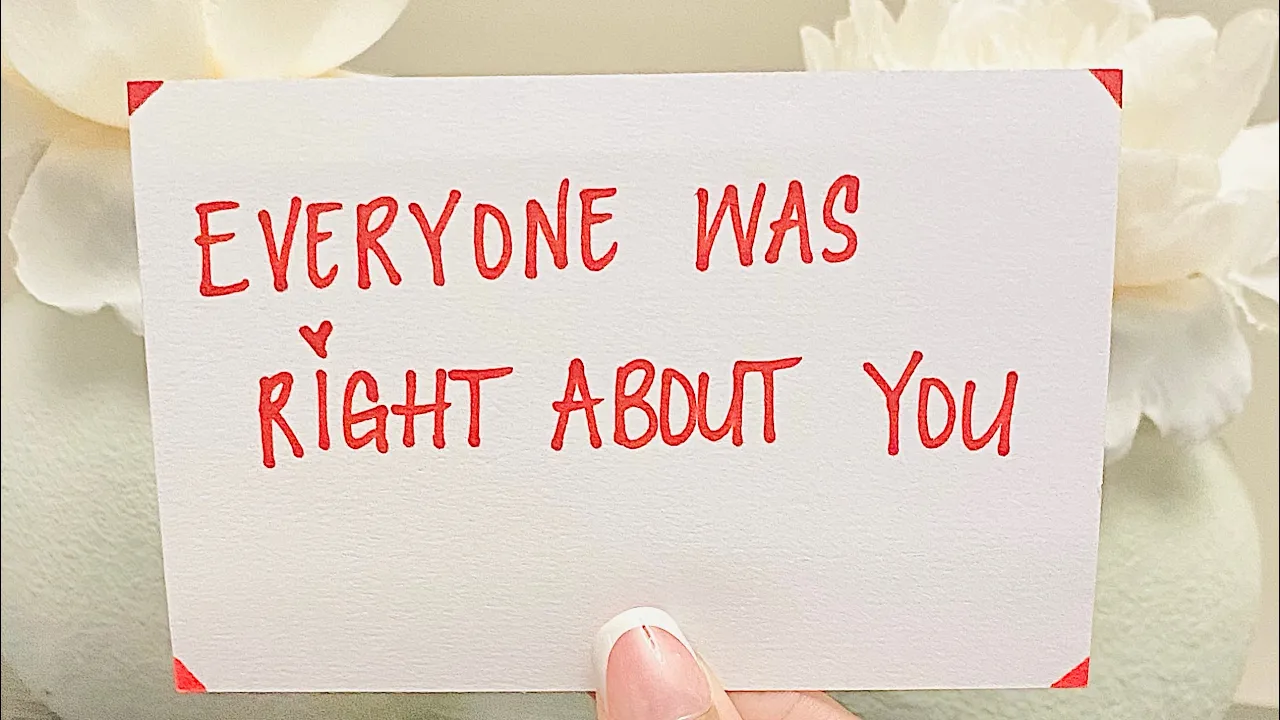 EVERYONE WAS
RIGHT ABOUT YOU